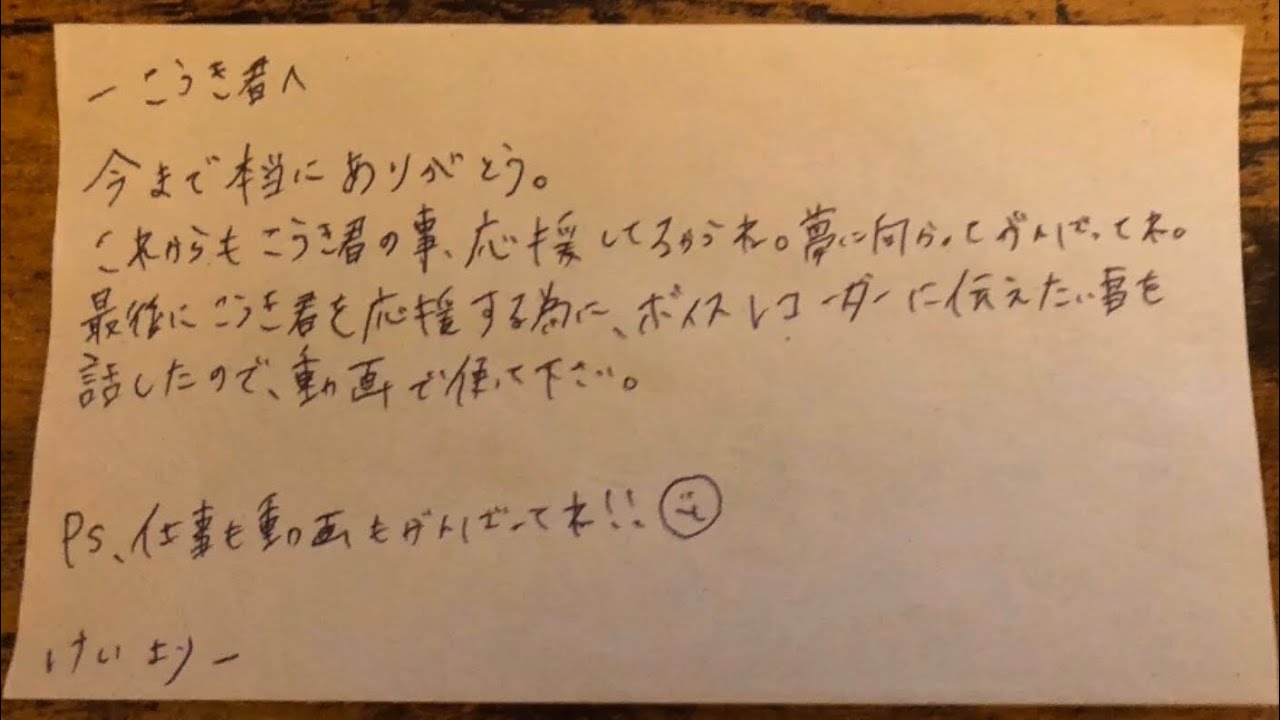 ーこうき君へ
今まで本当にありがとう。
これからもこうき君の事、応援してるからね。夢に向かってがんばってね。
最後にこうき君を応援する為に、ボイスレコーダーに伝えたい事を
話したので、動画で使って下さい。
PS、仕事も動画もがんばってね!!
けいよりー